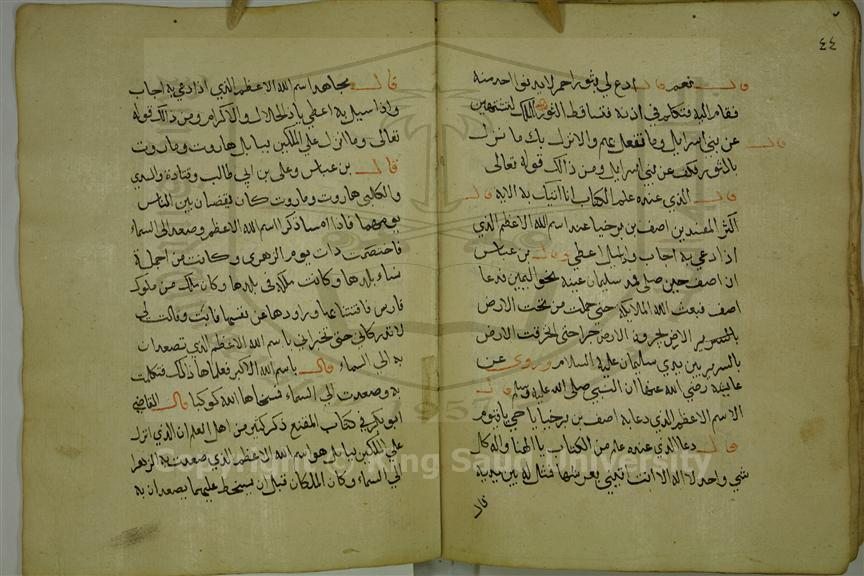 ٤٤
قال نعم قال ادع لي بثور احمر لا يدنوا احد منه
فقام اليه فتكلم في اذنه فتساقط الثور قال الملك لتنتهين
عن بني اسرايل وما تفعل بهم والا نزل بك ما نزل قال
بالثور فكف عن بني اسرايل ومن ذالك قوله تعالى
قال الذي عنده علم الكتاب انا اتيك به الاية قال
اكثر المفسرين اصف بن برخيا عنده اسم الله الاعظم الذي
اذا دعي به اجاب واذا سيل اعطي وقال بن عباس
ان اصف حين صلى مد سليمان عينه نحو اليمين فدعا
اصف فبعث الله الملايكة حتى حملت من تحت الارض
بالسرير الارض يجرون الارض جرا حتى انخرقت الارض
بالسرير بين يدي سليمان عليه السلام وروي عن
عايشة رضي الله عنها ان النبي صلى الله عليه وسلم قال
الاسم الاعظم الذي دعا به اصف بن برخيا يا حي يا قيوم
وقال دعا الذي عنده علم من الكتاب يا الهنا واله كل
شي واحد لا اله الا انت تيني بعرشها فمثل له بين يديه
قال
قال مجاهد اسم الله الاعظم الذي اذا دعي به اجاب
واذا سيل به اعطي يا ذا الجلال والاكرام ومن ذالك قوله
تعالى وما انزل علي الملكين ببابل هاروت وماروت
قال بن عباس وعلى بن ابي طالب وقتادة والسدي
والكلبي هاروت وماروت كان يقضيان بين الناس
يومهما فاذا امسيا ذكرا اسم الله الاعظم وصعدا الى السماء
فاختصمت ذات يوم الزهرى وكانت من اجمل
نساء بلدها وكانت ملكة في بلدها وكان ملك من ملوك
فارس فافتتنا بها وراودها عن نفسها فابت وقالت لي
لا تدركاني حتى تخبراني باسم الله الاعظم الذي تصعدان
به الي السماء قالا باسم الله الاكبر فعلماها ذلك فتكلمت
به وصعدت الي السماء فمسخها الله كوكبا قال القاضي
ابو بكر في كتاب المقنع ذكر كثير من اهل العلم ان الذي انزل
علي الملكين ببابل هو اسم الله الاعظم الذي صعدت به الزهرا
الي السماء وكان الملكان قبل ان يسخط عليهما يصعدان به
Copyright © King Saud University
1957